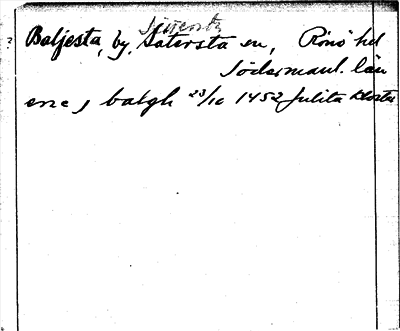 ?
Baljesta, by, Sätersta sn, Rönö hd
Södermanl. län
sne j balgh 23/10 1452 Julita kloster